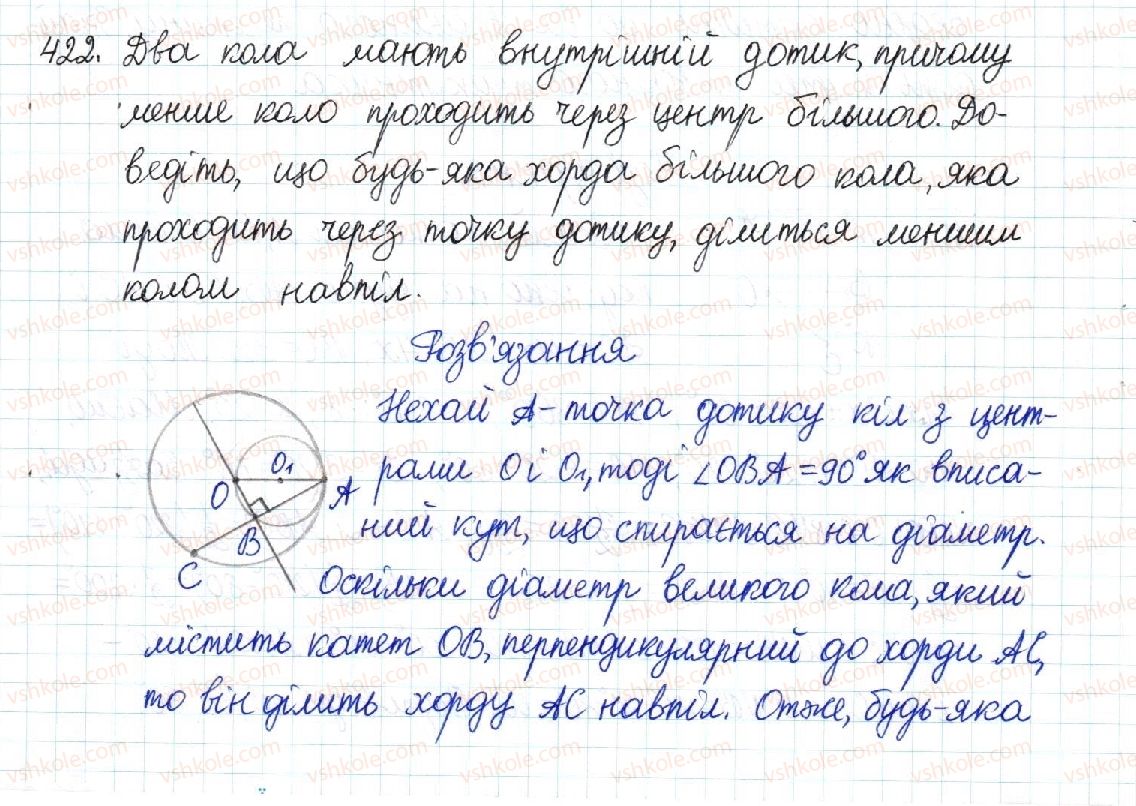 422. Два кола мають внутрішній дотик, причому
менше коло проходить через центр більшого. До-
ведіть, що будь-яка хорда більшого кола, яка
проходить через точку дотику, ділиться меншим
колом навпіл.
Розв'язання
Нехай А - точка дотику кіл з цент-
рами О і О₁, тоді ∠OBA = 90° як вписа-
ний кут, що спирається на діаметр.
Оскільки діаметр великого кола, який
містить катет ОВ, перпендикулярний до хорди АС,
то він ділить хорду АС навпіл. Отже, будь-яка
O
O₁
A
B
C
vshkole.com